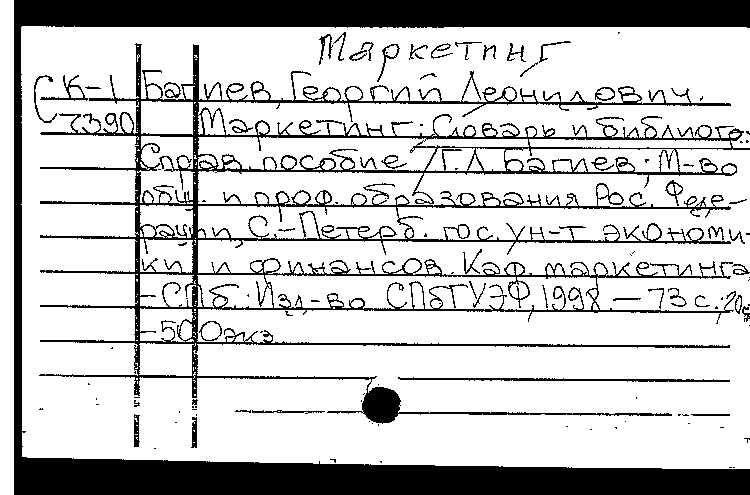 Маркетинг
СК-1 Багиев, Георгий Леонидович.
7390 Маркетинг: Словарь и библиогр.:
Справ. пособие / Г.Л. Багиев; М-во
общ. и проф. образования Рос. Феде-
рации, С.-Петерб. гос. ун-т экономи-
ки и финансов. Каф. маркетинга.
-СПб.: Изд-во СПбГУЭФ, 1998. — 73 с.; 20с
-500экз.